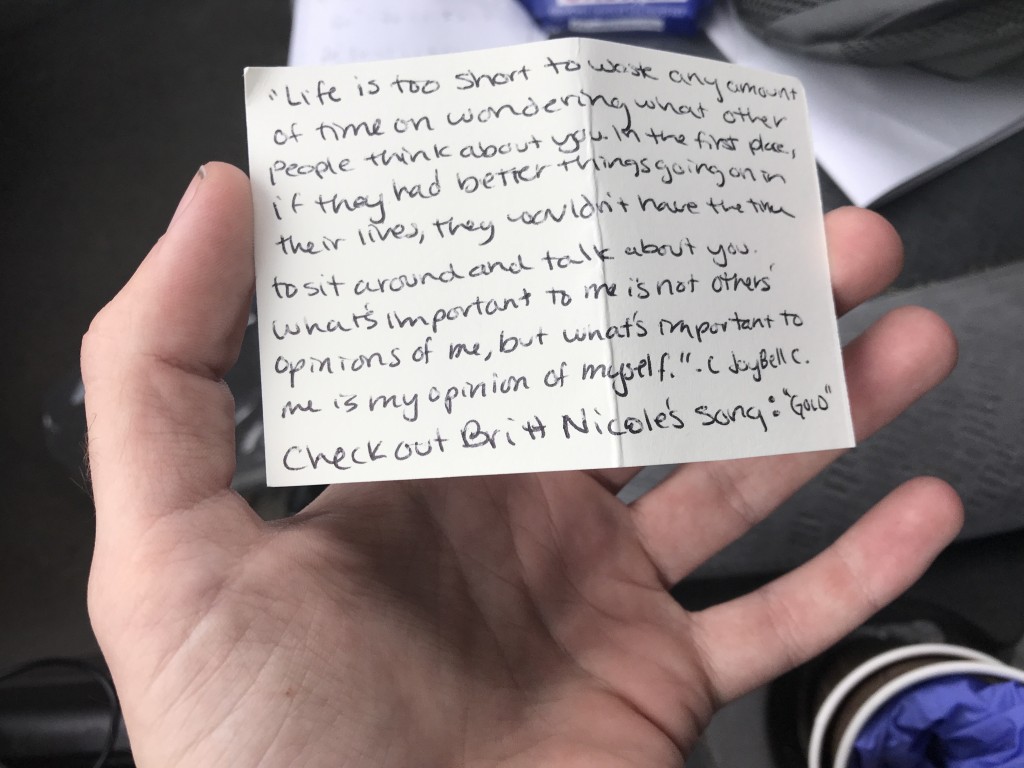 "Life is too short to waste any amount
of time on wondering what other
people think about you. In the first place,
if they had better things going on in
their lives, they wouldn't have the time
to sit around and talk about you.
what's important to me is not others'
opinions of me, but what's important to
me is my opinion of myself." - C JoyBell C.
Check out Britt Nicole's song: "GOLD"